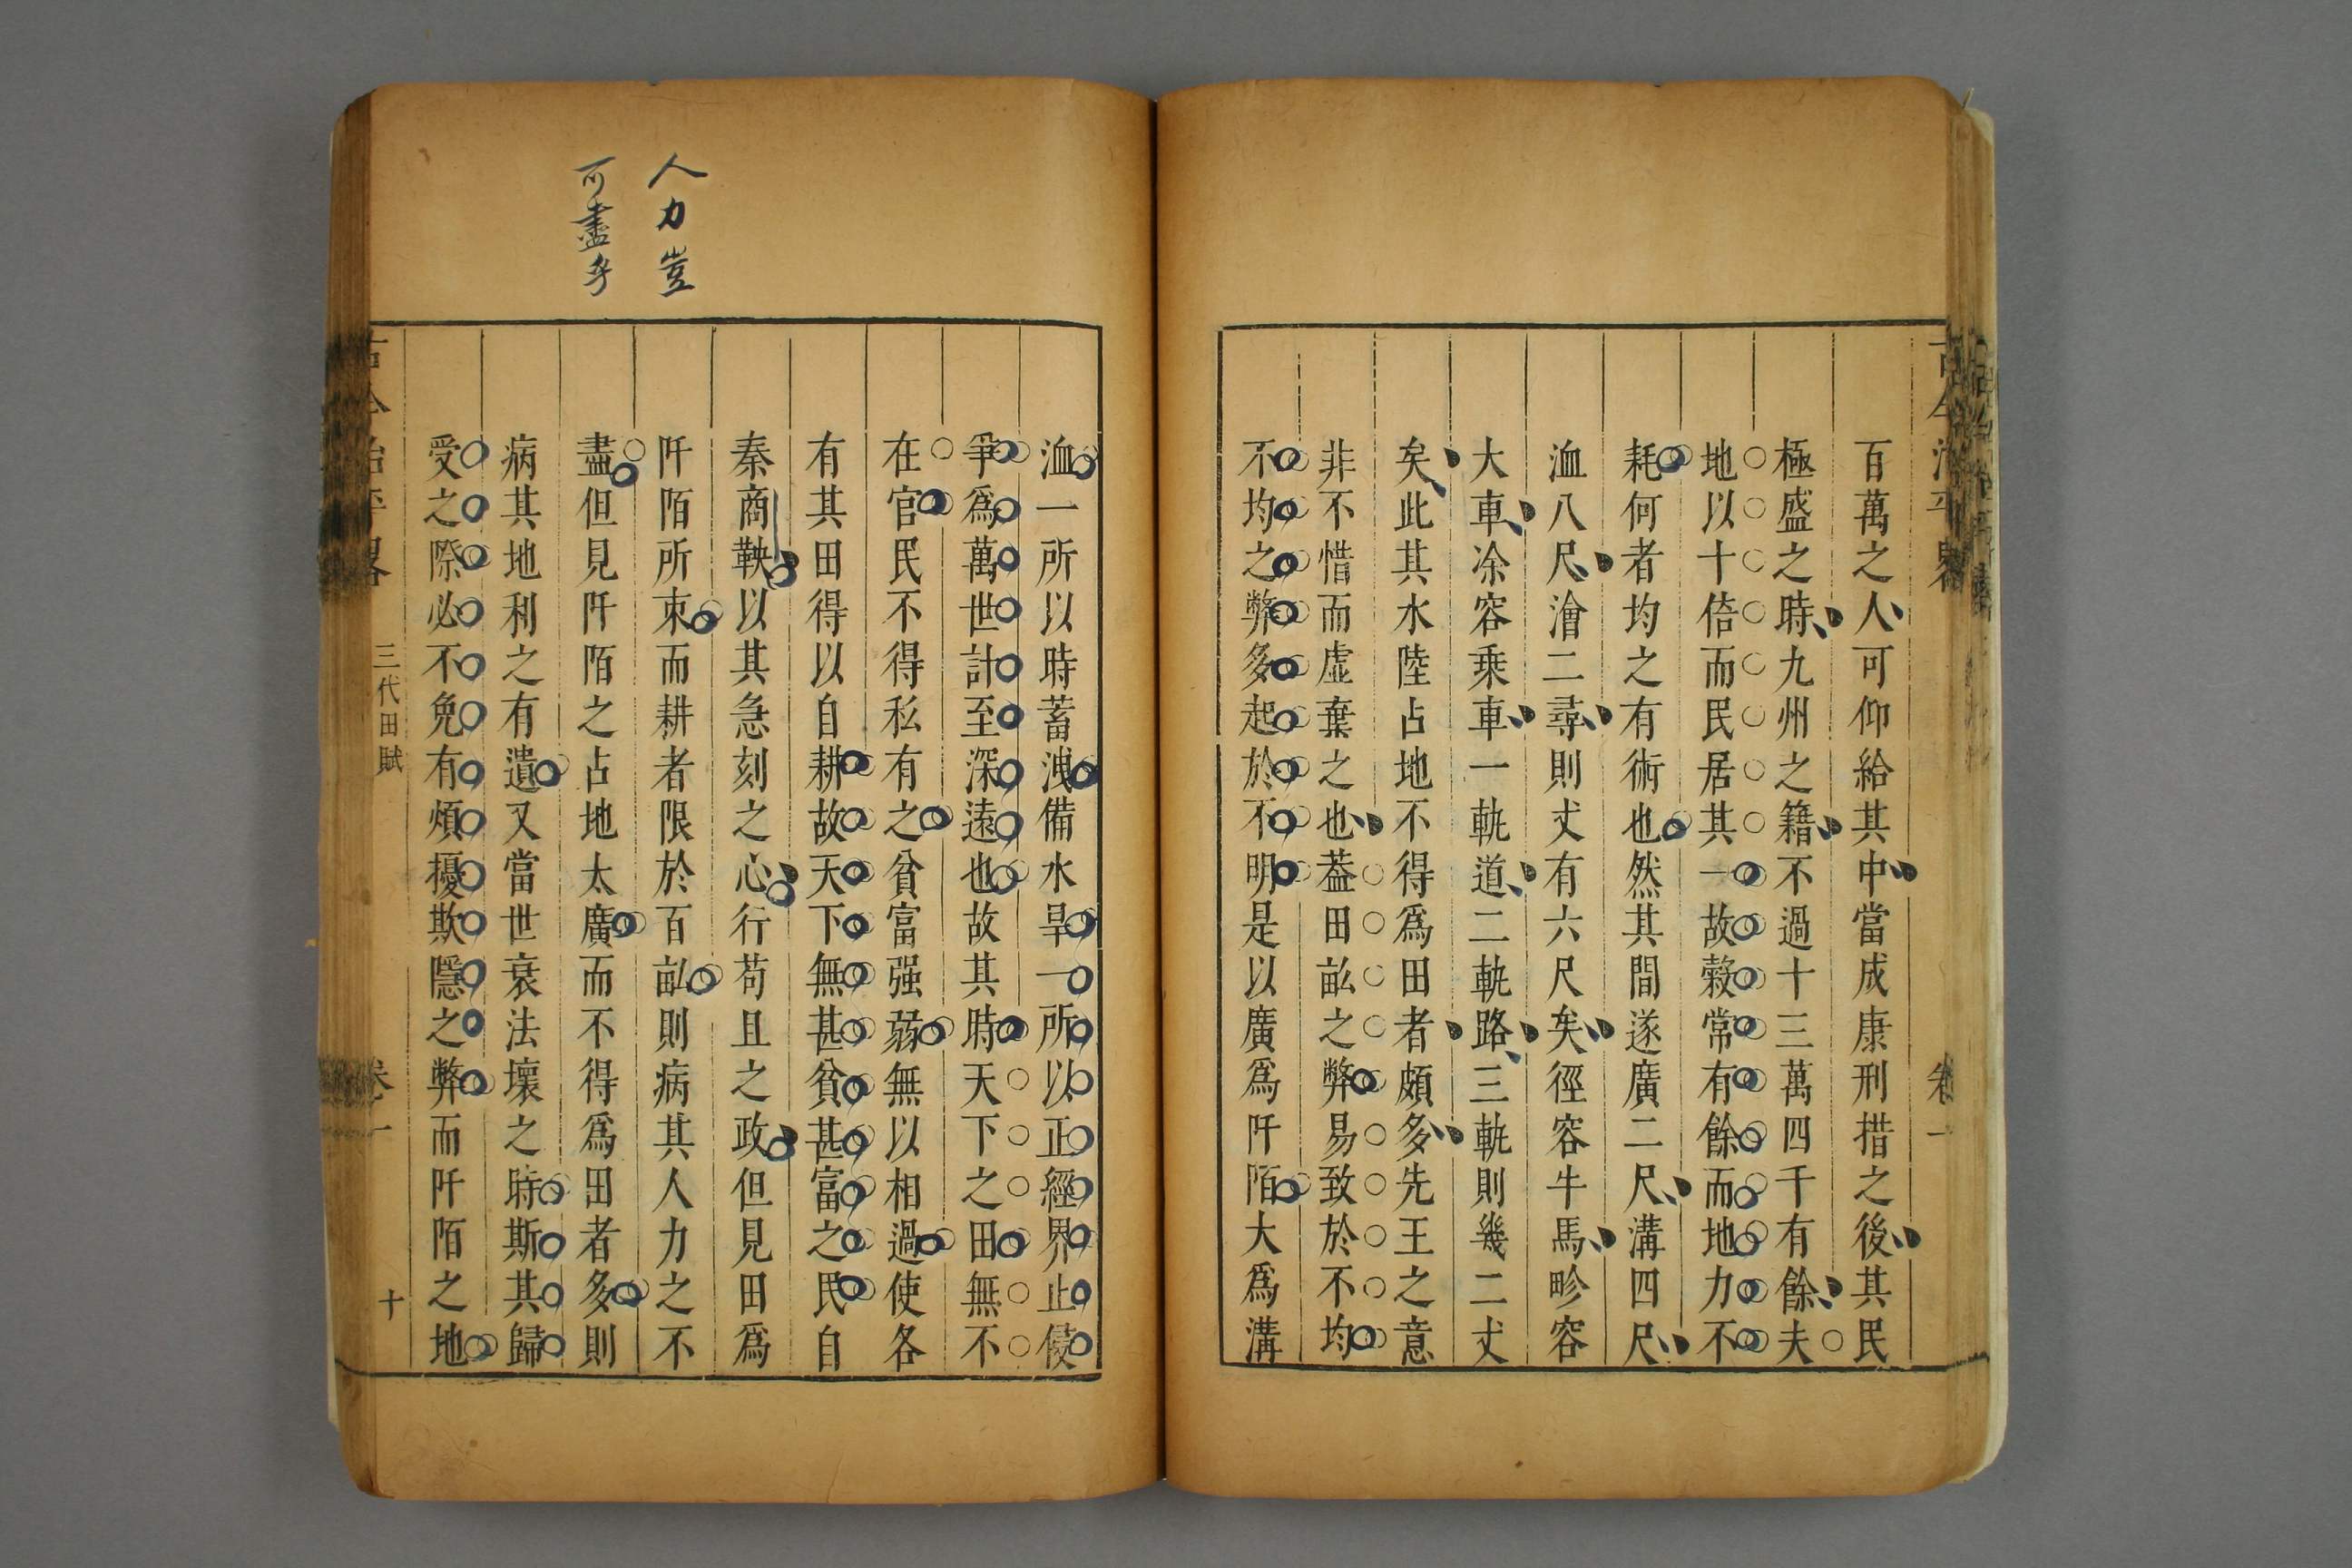 百萬之人可仰給其中當成康刑措之後其民
極盛之時九州之籍不過十三萬四千有餘夫
地以十倍而民居其一故穀常有餘而地力不
耗何者均之有術也然其間遂廣二尺溝四尺
洫八尺澮二尋則丈有六尺矣徑容牛馬畛容
大車凃容乗車一軌道二軌路三軌則幾二丈
矣此其水陸占地不得爲田者頗多先王之意
非不惜而虛棄之也葢田畝之弊易致於不均
不均之弊多起於不明是以廣爲阡陌大爲溝
洫一所以時蓄洩備水旱一所以正經界止侵
爭爲萬世計至深遠也故其時天下之田無不
在官民不得私有之貧富强弱無以相過使各
有其田得以自耕故天下無甚貧甚富之民自
秦商鞅以其急刻之心行苟且之政但見田爲
阡陌所束而耕者限於百畝則病其人力之不
盡但見阡陌之占地太廣而不得爲田者多則
病其地利之有遺又當世衰法壞之時斯其歸
受之際必不免有煩擾欺隱之弊而阡陌之地
人力豈
可盡乎
古今治平畧
三代田賦
卷一
十